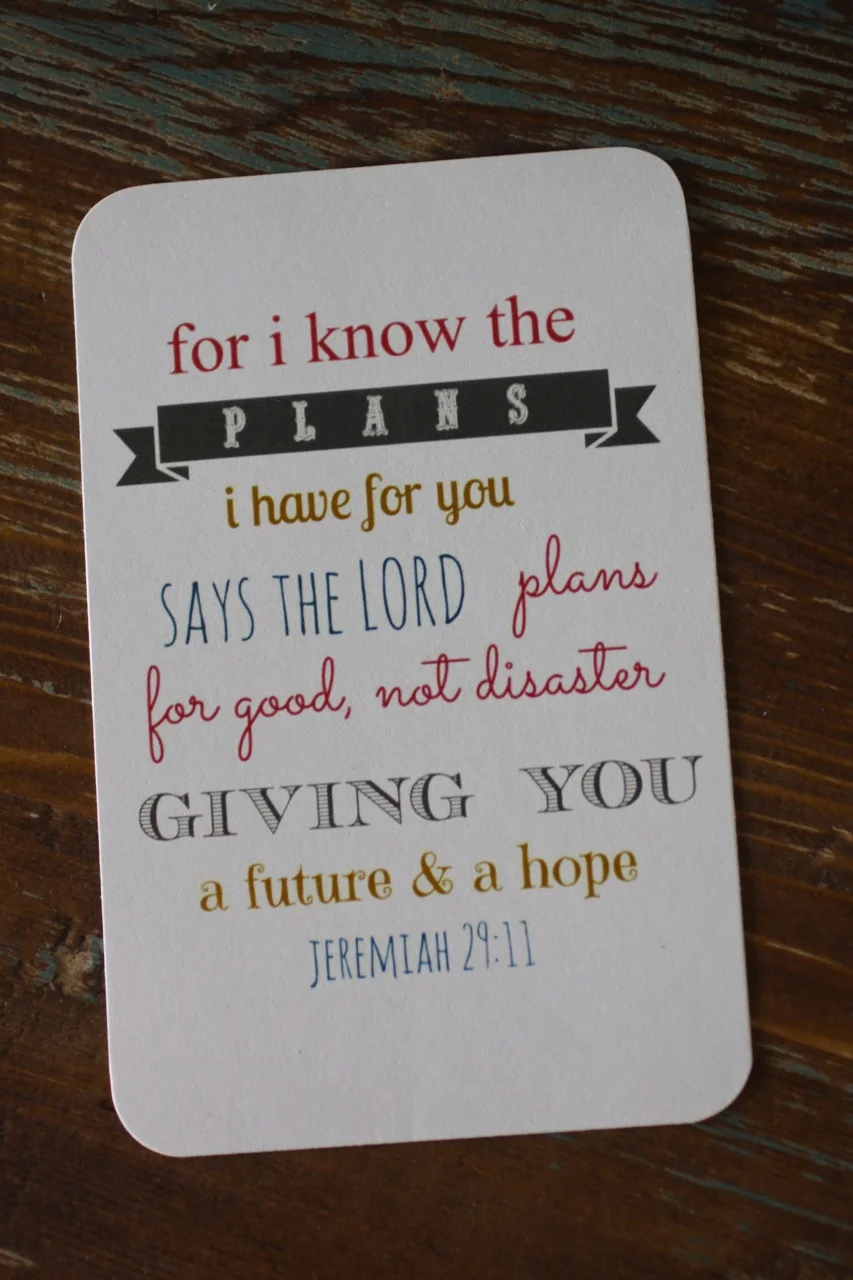 for i know the
PLANS
i have for you
SAYS THE LORD plans
for good, not disaster
GIVING YOU
a future & a hope
JEREMIAH 29:11